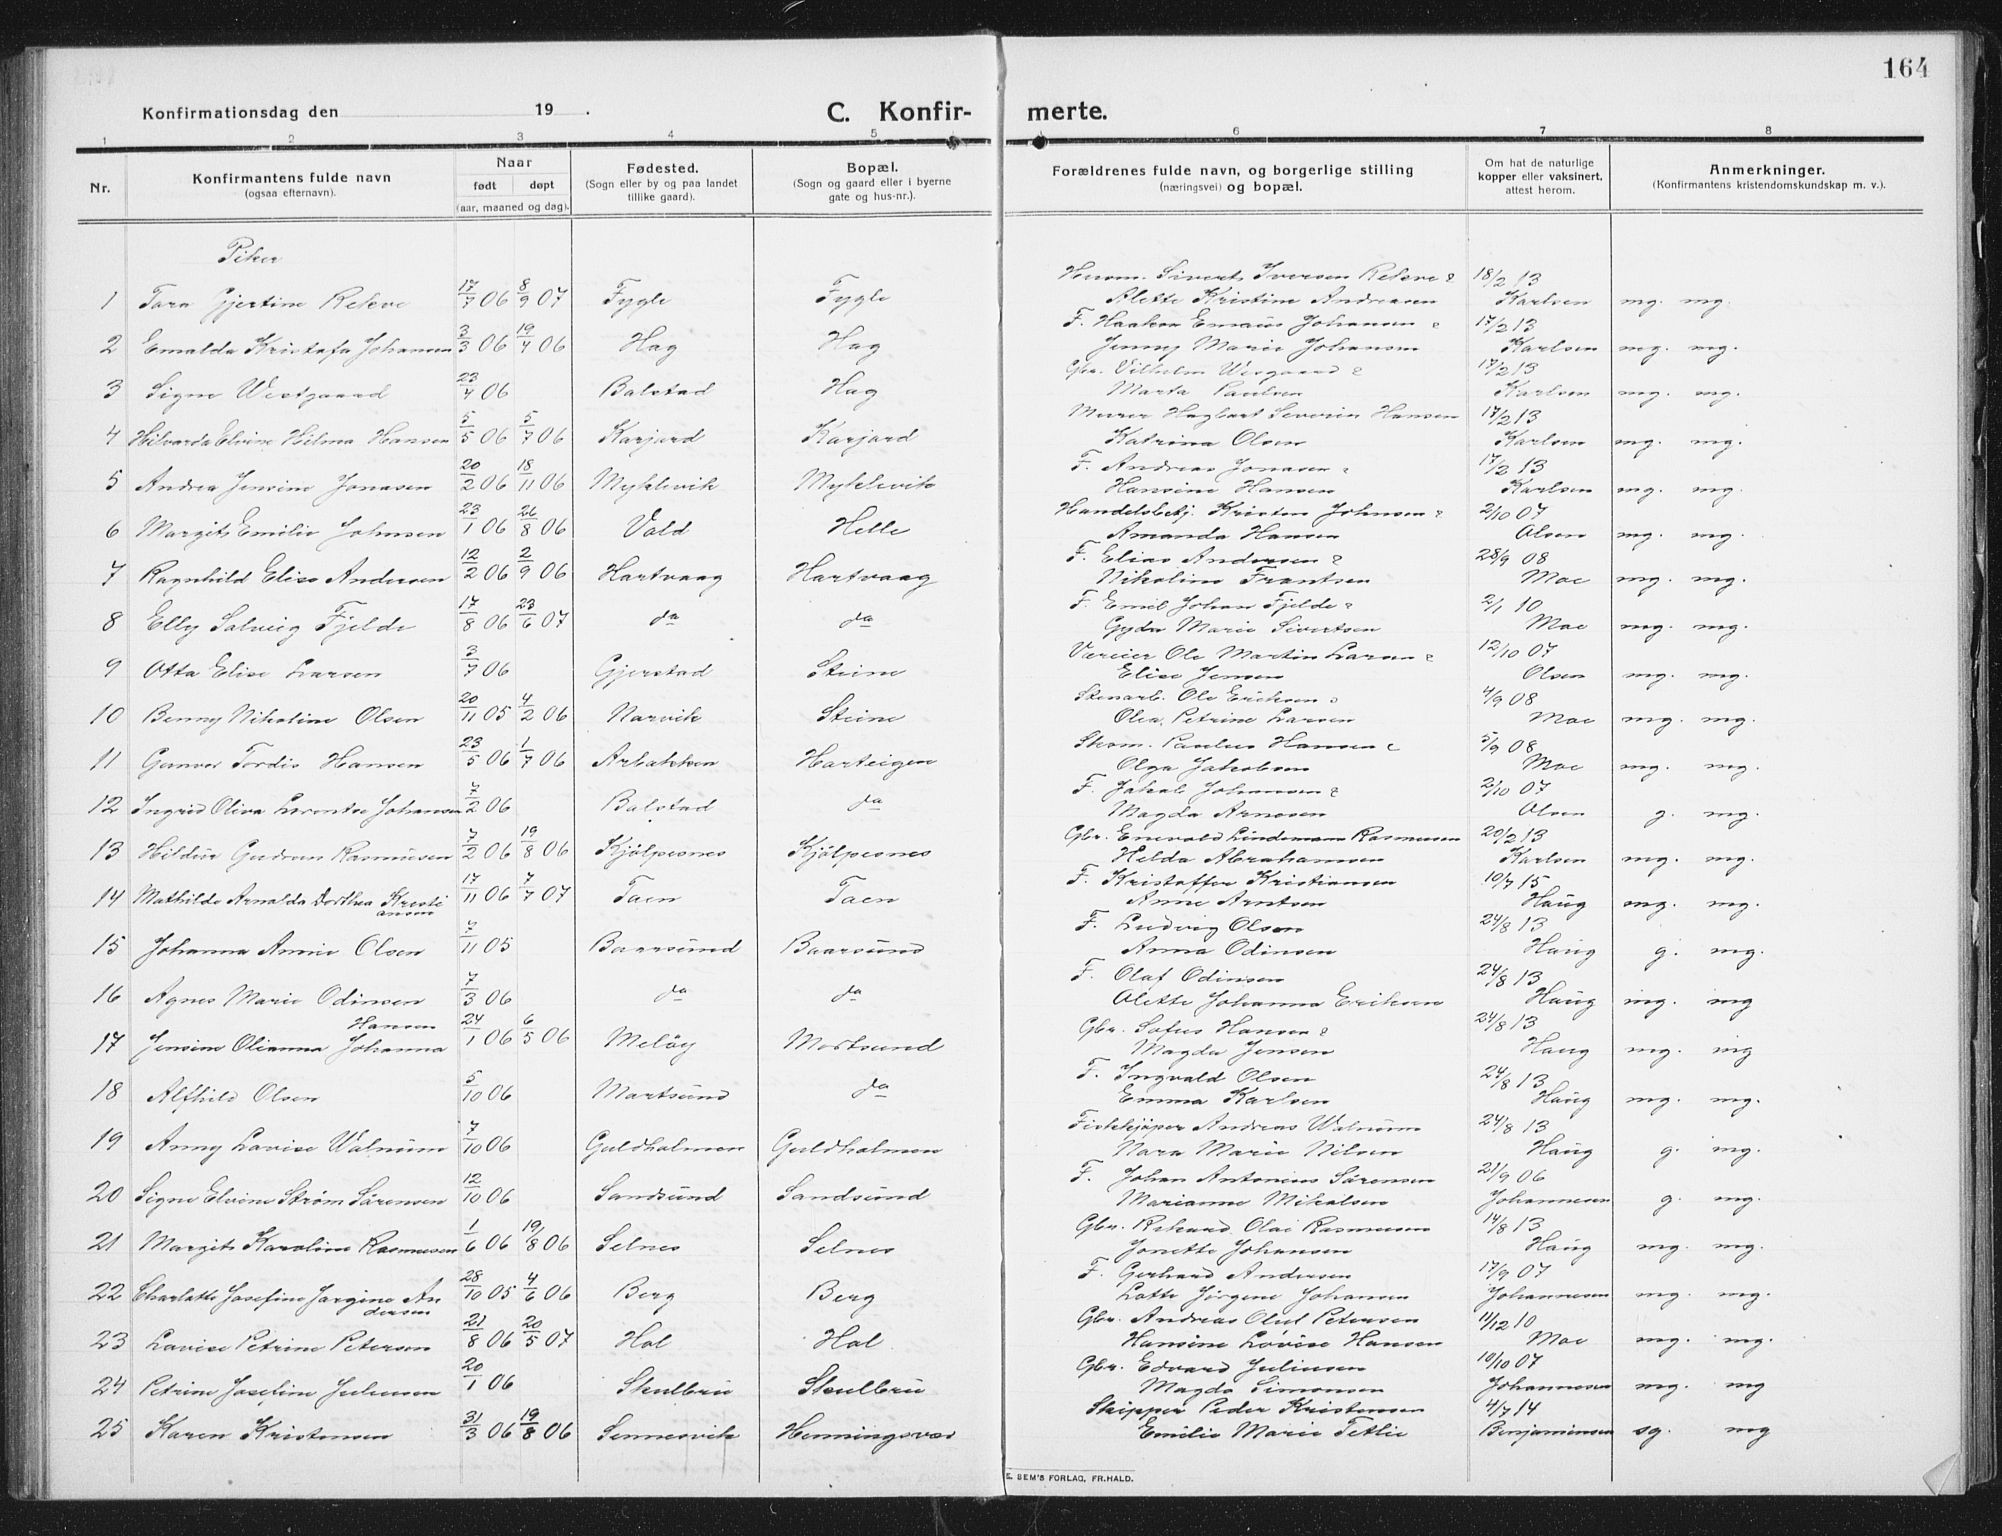 164
Konfirmationsdag den 19 .
C. Konfirmerte.
1 2 3 4 5 6 7 8
Nr. Konfirmantens fulde navn (ogsaa efternavn). Naar født døpt (aar, maaned og dag). Fødested. (Sogn eller by og paa landet tillike gaard). Bopæl. (Sogn og gaard eller i byerne gate og hus-nr.). Forældrenes fulde navn, og borgerlige stilling (næringsvei) og bopæl. Om hat de naturlige kopper eller vaksinert, attest herom. Anmerkninger. (Konfirmantens kristendomskundskap m. v.).
Piker
1 Tora Gjertine Rekve 17/7 06 8/9 07 Fygle Fygle Husm. Sivert Iversen Rekve & Alette Kristine Andreasen 18/2 13 Karlsen mg. mg.
2 Emalda Kristofa Johansen 3/3 06 19/4 06 Hag Hag F. Haakon Emaus Johansen & Jenny Marie Johansen 17/2 13 Karlsen mg. mg.
3 Signe Westgaard 23/4 06 Balstad Hag Gbr. Vilhelm Wesgaard & Marta Paulsen 17/2 13 Karlsen mg. mg.
4 Hilvarda Elvine Hilma Hansen 5/5 06 5/7 06 Karjord Karjord Murer Hagbart Severin Hansen Katrina Olsen 17/2 13 Karlsen mg. mg.
5 Andrea Jensine Jonasen 20/2 06 18/11 06 Myklevik Myklevik F. Andreas Jonasen & Hansine Hansen 17/2 13 Karlsen mg. mg.
6 Margit Emilie Johnsen 23/1 06 26/8 06 Vold Helle Handelsbetj. Kristen Johnsen & Amanda Hansen 2/10 07 Olsen mg. mg.
7 Ragnhild Elise Andersen 12/2 06 2/9 06 Hartvaag Hartvaag F. Elias Andersen & Nikoline Frantsen 28/9 08 Moe mg. mg.
8 Elly Solveig Fjelde 17/8 06 23/6 07 do do F. Emil Johan Fjelde & Gyda Marie Sivertsen 2/1 10 Moe mg. mg.
9 Otta Elise Larsen 3/7 06 Gjerstad Steine Væreier Ole Martin Larsen & Elise Jensen 12/10 07 Olsen mg. mg.
10 Benny Nikoline Olsen 20/11 05 4/2 06 Narvik Steine Stenarb. Ole Eriksen & Olea Petrine Larsen 4/9 08 Moe mg. mg.
11 Gunvor Tordis Hansen 23/5 06 1/7 06 Arbakken Harteigen Skom. Paulus Hansen & Olga Jakobsen 5/9 08 Moe mg. mg.
12 Ingrid Oliva Lorentse Johansen 7/2 06 Balstad do F. Jakob Johansen & Magda Arnesen 2/10 07 Olsen g. mg.
13 Hildur Gudrun Rasmusen 7/2 06 19/8 06 Kjølpesnes Kjølpesnes Gbr. Enevold Lindemann Rasmusen Helda Abrahamsen 20/2 13 Karlsen mg. mg.
14 Mathilde Arnolda Dorthea Kristiansen 17/11 06 7/7 07 Taen Taen F. Kristoffer Kristiansen Anne Arntsen 10/7 15 Haug mg. mg.
15 Johanna Annie Olsen 7/11 05 Baarsund Baarsund F. Ludvig Olsen Anna Odinsen 24/8 13 Haug g. mg.
16 Agnes Marie Odinsen 7/3 06 do do F. Olaf Odinsen Alette Johanna Eriksen 24/8 13 Haug mg. mg
17 Jensine Olianna Johanna Hansen 24/1 06 6/5 06 Meløy Mortsund Gbr. Sofus Hansen & Magda Jensen 24/8 13 Haug mg. mg
18 Alfhild Olsen 5/10 06 Mortsund do F. Ingvald Olsen Emma Karlsen 24/8 13 Haug mg. mg.
19 Anny Lovise Walnum 7/10 06 Guldholmen Guldholmen Fiskekjøper Andreas Walnum Nora Marie Nilsen 24/8 13 Haug g. mg.
20 Signe Elvine Strøm Sørensen 12/10 06 Sandsund Sandsund F. Johan Antonius Sørensen Marianne Mikalsen 21/9 06 Johannesen g. mg.
21 Margit Karoline Rasmusen 1/6 06 19/8 06 Selnes Selnes Gbr. Rikard Olai Rasmusen Jonette Johansen 14/8 13 Haug mg. mg.
22 Charlotte Josefine Jorgine Andersen 28/10 05 4/6 06 Berg Berg F. Gerhard Andersen Lotte Jørgene Johansen 17/9 07 Johannesen mg. mg.
23 Lovise Petrine Petersen 21/8 06 20/5 07 Hol Hol Gbr. Andreas Oluf Petersen Hansine Lovise Hansen 11/12 10 Moe mg. mg.
24 Petrine Josefine Juliusen 20/1 06 Skulbru Skulbru Gbr. Edvard Juliusen Magda Simonsen 10/10 07 Johannesen mg. mg
25 Karen Kristensen 31/3 06 19/8 06 Sennesvik Henningsvær Skipper Peder Kristensen Emilie Marie Tetlie 4/7 14 Benjaminsen sg. mg
E. SEM'S FORLAG, FR.HALD.